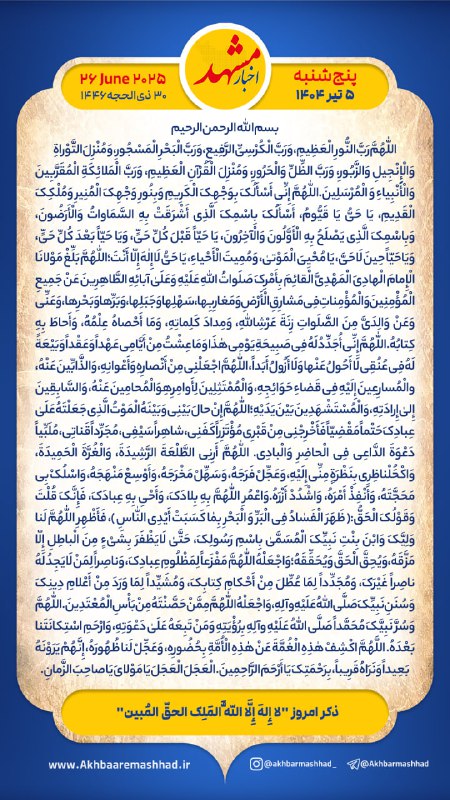 اخبار مشهد
پنج‌شنبه
۵ تیر ۱۴۰۴
26 June 2025
۳۰ ذی الحجه ۱۴۴۶
بسم الله الرحمن الرحیم
اللَّهُمَّ رَبَّ النُّورِ الْعَظِیمِ، وَرَبَّ الْکُرْسِیِّ الرَّفِیعِ، وَرَبَّ الْبَحْرِ الْمَسْجُورِ، وَمُنْزِلَ التَّوْراةِ
وَالْإِنْجِیلِ وَالزَّبُورِ، وَرَبَّ الظِّلِّ وَالْحَرُورِ، وَمُنْزِلَ الْقُرْآنِ الْعَظِیمِ، وَرَبَّ الْمَلائِکَةِ الْمُقَرَّبِینَ
وَالْأَنْبِیاءِ وَالْمُرْسَلِینَ. اللَّهُمَّ إِنِّی أَسْأَلُکَ بِوَجْهِکَ الْکَرِیمِ وَبِنُورِ وَجْهِکَ الْمُنِیرِ وَمُلْکِکَ
الْقَدِیمِ، یَا حَیُّ یَا قَیُّومُ، أَسْأَلُکَ بِاسْمِکَ الَّذِی أَشْرَقَتْ بِهِ السَّمَاوَاتُ وَالْأَرَضُونَ،
وَبِاسْمِکَ الَّذِی یَصْلَحُ بِهِ الْأَوَّلُونَ وَالْآخِرُونَ، یَا حَیّاً قَبْلَ کُلِّ حَیٍّ، وَیَا حَیّاً بَعْدَ کُلِّ حَیٍّ،
وَیَا حَیّاً حِینَ لَا حَیَّ، یَا مُحْیِیَ الْمَوْتىٰ، وَمُمِیتَ الْأَحْیاءِ، یَا حَیُّ لَا إِلٰهَ إِلّا أَنْتَ؛ اللَّهُمَّ بَلِّغْ مَوْلانَا
الْإِمامَ الْهادِیَ الْمَهْدِیَّ الْقائِمَ بِأَمْرِکَ صَلَواتُ اللهِ عَلَیْهِ وَعَلىٰ آبائِهِ الطَّاهِرِینَ عَنْ جَمِیعِ
الْمُؤْمِنِینَ وَالْمُؤْمِناتِ فِی مَشارِقِ الْأَرْضِ وَمَغارِبِها، سَهْلِها وَجَبَلِها، وَبَرِّها وَبَحْرِها، وَعَنِّی
وَعَنْ وَالِدَیَّ مِنَ الصَّلَواتِ زِنَةَ عَرْشِ اللهِ، وَمِدادَ کَلِماتِهِ، وَمَا أَحْصاهُ عِلْمُهُ، وَأَحاطَ بِهِ
کِتابُهُ. اللَّهُمَّ إِنِّی أُجَدِّدُ لَهُ فِی صَبِیحَةِ یَوْمِی هٰذا وَمَا عِشْتُ مِنْ أَیَّامِی عَهْداً وَعَقْداً وَبَیْعَةً
لَهُ فِی عُنُقِی لَا أَحُولُ عَنْها وَلَا أَزُولُ أَبَداً، اللَّهُمَّ اجْعَلْنِی مِنْ أَنْصارِهِ وَأَعْوانِهِ، وَالذَّابِّینَ عَنْهُ،
وَالْمُسارِعِینَ إِلَیْهِ فِی قَضاءِ حَوَائِجِهِ، وَالْمُمْتَثِلِینَ لِأَوامِرِهِ وَالْمُحامِینَ عَنْهُ، وَالسَّابِقِینَ
إِلىٰ إِرادَتِهِ، وَالْمُسْتَشْهَدِینَ بَیْنَ یَدَیْهِ؛ اللَّهُمَّ إِنْ حالَ بَیْنِی وَبَیْنَهُ الْمَوْتُ الَّذِی جَعَلْتَهُ عَلىٰ
عِبادِکَ حَتْماً مَقْضِیّاً فَأَخْرِجْنِی مِنْ قَبْرِی مُؤْتَزِراً کَفَنِی، شاهِراً سَیْفِی، مُجَرِّداً قَناتِی، مُلَبِّیاً
دَعْوَةَ الدَّاعِی فِی الْحاضِرِ وَالْبادِی. اللَّهُمَّ أَرِنِی الطَّلْعَةَ الرَّشِیدَةَ، وَالْغُرَّةَ الْحَمِیدَةَ،
وَاکْحُلْ ناظِرِی بِنَظْرَةٍ مِنِّی إِلَیْهِ، وَعَجِّلْ فَرَجَهُ، وَسَهِّلْ مَخْرَجَهُ، وَأَوْسِعْ مَنْهَجَهُ، وَاسْلُکْ بِی
مَحَجَّتَهُ، وَأَنْفِذْ أَمْرَهُ، وَاشْدُدْ أَزْرَهُ. وَاعْمُرِ اللَّهُمَّ بِهِ بِلادَکَ، وَأَحْیِ بِهِ عِبادَکَ، فَإِنَّکَ قُلْتَ
وَقَوْلُکَ الْحَقُّ: ﴿ظَهَرَ الْفَسادُ فِی الْبَرِّ وَ الْبَحْرِ بِمَا کَسَبَتْ أَیْدِی النَّاسِ﴾، فَأَظْهِرِ اللَّهُمَّ لَنا
وَلِیَّکَ وَابْنَ بِنْتِ نَبِیِّکَ الْمُسَمَّىٰ بِاسْمِ رَسُولِکَ، حَتَّىٰ لَا یَظْفَرَ بِشَیْءٍ مِنَ الْباطِلِ إِلّا
مَزَّقَهُ، وَیُحِقَّ الْحَقَّ وَیُحَقِّقَهُ؛ وَاجْعَلْهُ اللَّهُمَّ مَفْزَعاً لِمَظْلُومِ عِبادِکَ، وَناصِراً لِمَنْ لَا یَجِدُ لَهُ
ناصِراً غَیْرَکَ، وَمُجَدِّداً لِمَا عُطِّلَ مِنْ أَحْکامِ کِتابِکَ، وَمُشَیِّداً لِمَا وَرَدَ مِنْ أَعْلامِ دِینِکَ
وَسُنَنِ نَبِیِّکَ صَلَّى اللهُ عَلَیْهِ وَآلِهِ، وَاجْعَلْهُ اللَّهُمَّ مِمَّنْ حَصَّنْتَهُ مِنْ بَأْسِ الْمُعْتَدِینَ. اللَّهُمَّ
وَسُرَّ نَبِیَّکَ مُحَمَّداً صَلَّى اللهُ عَلَیْهِ وَآلِهِ بِرُؤْیَتِهِ وَمَنْ تَبِعَهُ عَلىٰ دَعْوَتِهِ، وَارْحَمِ اسْتِکانَتَنا
بَعْدَهُ. اللَّهُمَّ اکْشِفْ هٰذِهِ الْغُمَّةَ عَنْ هٰذِهِ الْأُمَّةِ بِحُضُورِهِ، وَعَجِّلْ لَنا ظُهُورَهُ، إِنَّهُمْ یَرَوْنَهُ
بَعِیداً وَنَرَاهُ قَرِیباً، بِرَحْمَتِکَ یَا أَرْحَمَ الرَّاحِمِینَ. الْعَجَلَ الْعَجَلَ یَا مَوْلایَ یَا صاحِبَ الزَّمانِ.
ذکر امروز "لا إِلهَ إِلَّا اللهُ الْمَلِک الحقّ المُبین"
www.Akhbaaremashhad.ir
@akhbarmashhad_
@Akhbarmashhad